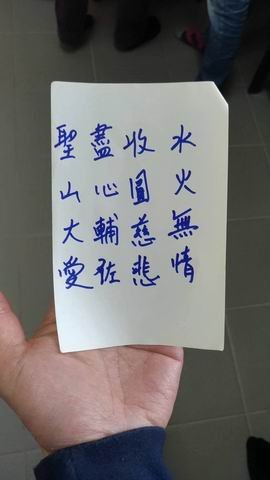 水火無情
收圓慈悲
盡心輔佐
聖山大愛